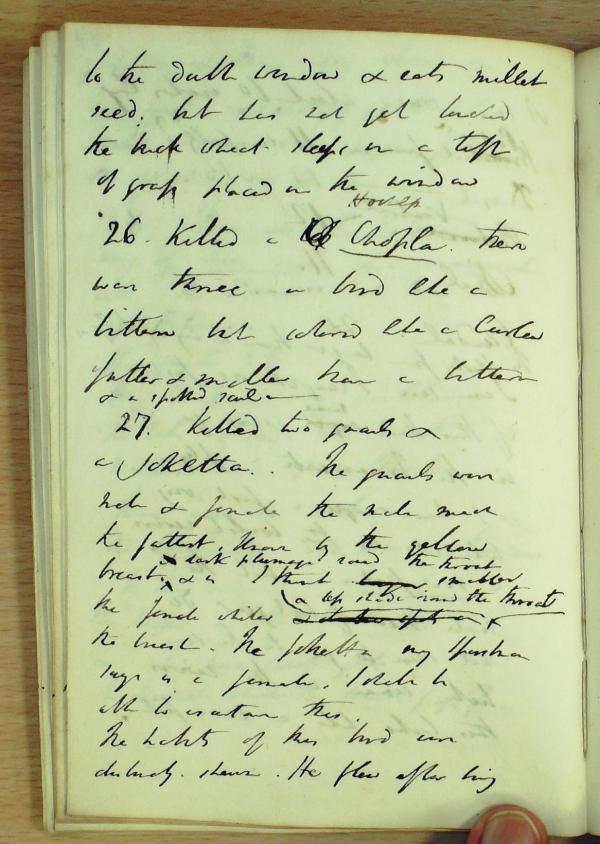 to the bath window & eats millet
seed. but has not yet touched
the buck wheat sleeps on a tuft
of grass placed in the window
26. Killed a Chopla. there
were three a bird like a
bittern but colored like a Curlew
fatter & smaller than a bittern
& a spotted
27. Killed two quails &
a Joketta.. The quails were
male & female the male much
the fattest. Known by the yellow
& dark plumage round the throat
breast, & is I think smaller
a less shade round the throat
the female whiter
the breast. The Joketta my
says is a female. I shall be
able to ascertain this.
The habits of this bird were
distinctly shewn. He flew after being